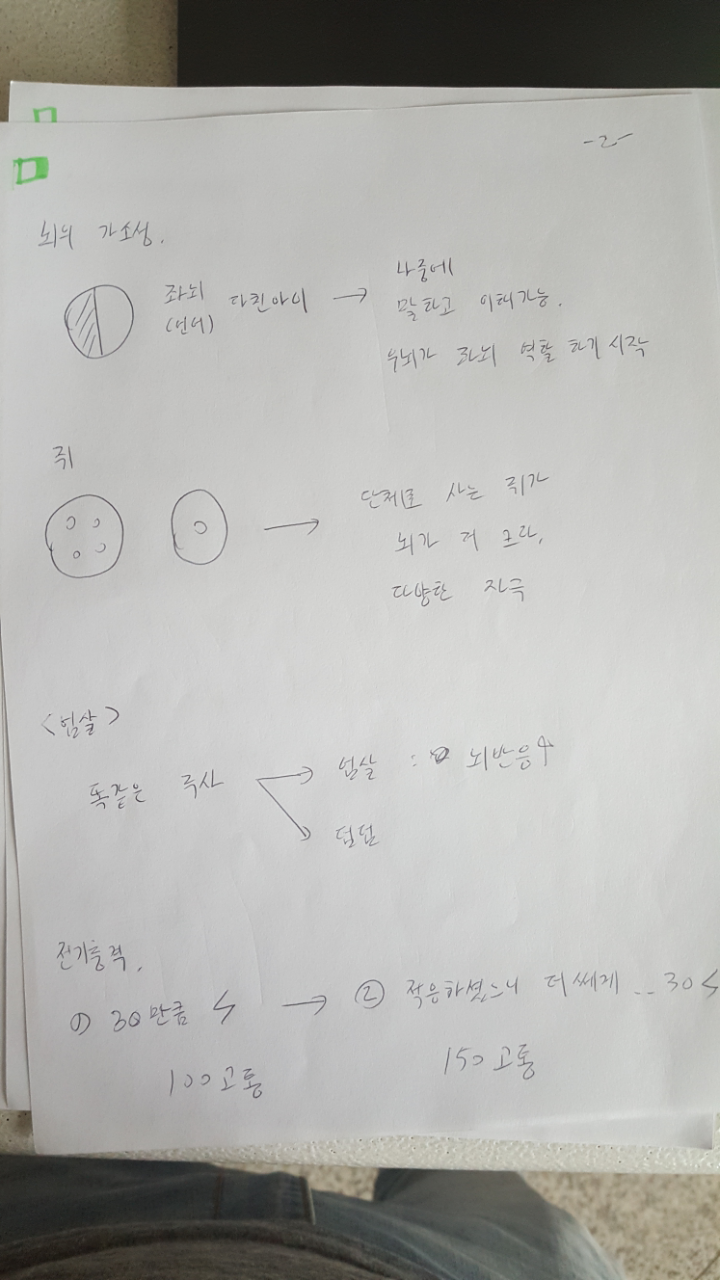 -2-
뇌의 가소성.
좌뇌 (언어) 다친아이 →
나중에
말하고 이해가능.
우뇌가 좌뇌 역할 하기 시작
쥐
→ 단체로 사는 쥐가
뇌가 더 크다.
다양한 자극
<엄살>
똑같은 주사
엄살 : 뇌반응↑
덤덤
전기충격.
① 30만큼 → ② 적응하셨으니 더쎄게 .. 30
100고통 150고통